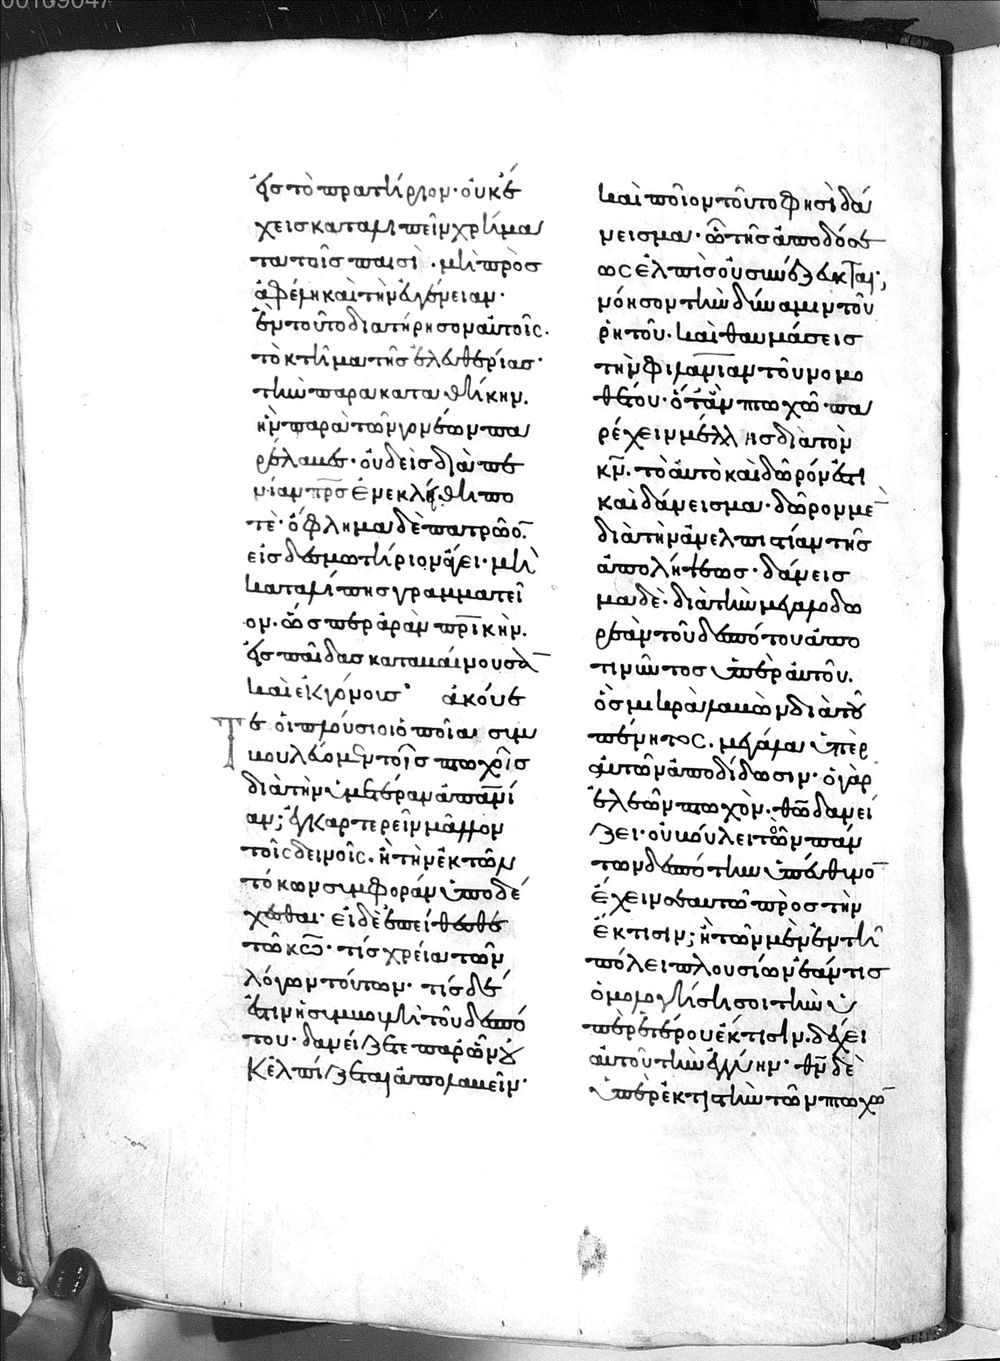 εἰς τὸ πρατήριον· οὐκ ἔ
χεις καταλιπεῖν χρήμα
τα τοῖς παισί· μὴ προσ
αφέλη καὶ τὴν εὐγένειαν·
ἓν τοῦτο διατήρησον αὐτοῖς·
τὸ κτῆμα τῆς ἐλευθερίας·
τὴν παρακαταθήκην.
ἣν παρὰ τῶν γονέων πα
ρέλαβες· οὐδεὶς διὰ πε
νίαν πρς ἐνεκλήθη πο
τὲ· ὄφλημα δὲ πατρῶο̄
εἰς δεσμωτήριον ἄγει· μὴ
καταλίπης γραμματεῖ
ον. ὥσπερ ἀρὰν πρικὴν.
εἰς παῖδας καταβαίνουσᾱ
καὶ ἐκγόνους· ἀκούε
τε οἱ πλούσιοι ὁποῖα συμ
βουλεύομεν τοῖς πτωχοῖς
διὰ τὴν ὑμετέραν ἀπανί
αν; ἐγκαρτερεῖν μᾶλλον
τοῖς δεινοῖς. ἢ τὴν ἐκ τῶν
τόκων συμφορὰν ὑποδέ
χεσθαι· εἰ δὲ ἐπείθεσθε
τῶ κω· τίς χρεία τῶν
λόγων τούτων· τίς δέ
ἐστιν ἡ συμβουλὴ τοῦ δεσπό
του· δανείζετε παρ' ὧν οὐ
κ ἐλπίζεται ἀπολαβεῖν·
καὶ ποῖον τοῦτο φησὶ δά
νεισμα· ὧ τῆς ἀποδόσε
ως ἐλπὶς οὐ συνέζευκται;
νόησον τὴν δύναμιν τοῦ
ῥητοῦ· καὶ θαυμάσεις
τὴν φιλανιαν τοῦ νομο
θέτου· ὅταν πτωχῶ πα
ρέχειν μέλλης διὰ τὸν
κν. τὸ αὐτὸ καὶ δῶρόν ἐστι
καὶ δάνεισμα· δῶρον μὲ̄
διὰ τὴν ἀνελπιστίαν τῆς
ἀπολήψεως· δάνεισ
μα δὲ· διὰ τὴν μεγαλοδω
ρεὰν τοῦ δεσπότου ἀπο
τιμῶντος ὑπὲρ αὐτοῦ.
ὃς μικρὰ λαβὼν διὰ τοῦ
πένητος. μεγάλα ὑπὲρ
αὐτῶν ἀποδίδωσιν· ὁ γὰρ
ἐλεῶν πτωχὸν. θω δανεί
ζει· οὐ βούλει τὸν πάν
των δεσπότην ὑπεύθυνο̄
ἔχειν σεαυτῶ πρὸς τὴν
ἔκτισιν; ἢ τῶν μὲν ἐν τῆ
πόλει πλουσίων ἐάν τις
ὁμολογήση σοι τὴν ὑ
πὲρ ἑτέρου ἔκτισιν. δέχει
αὐτοῦ τὴν ἐγγύην· θν δὲ
ὑπερεκτιστὴν τῶν πτωχῶ̄